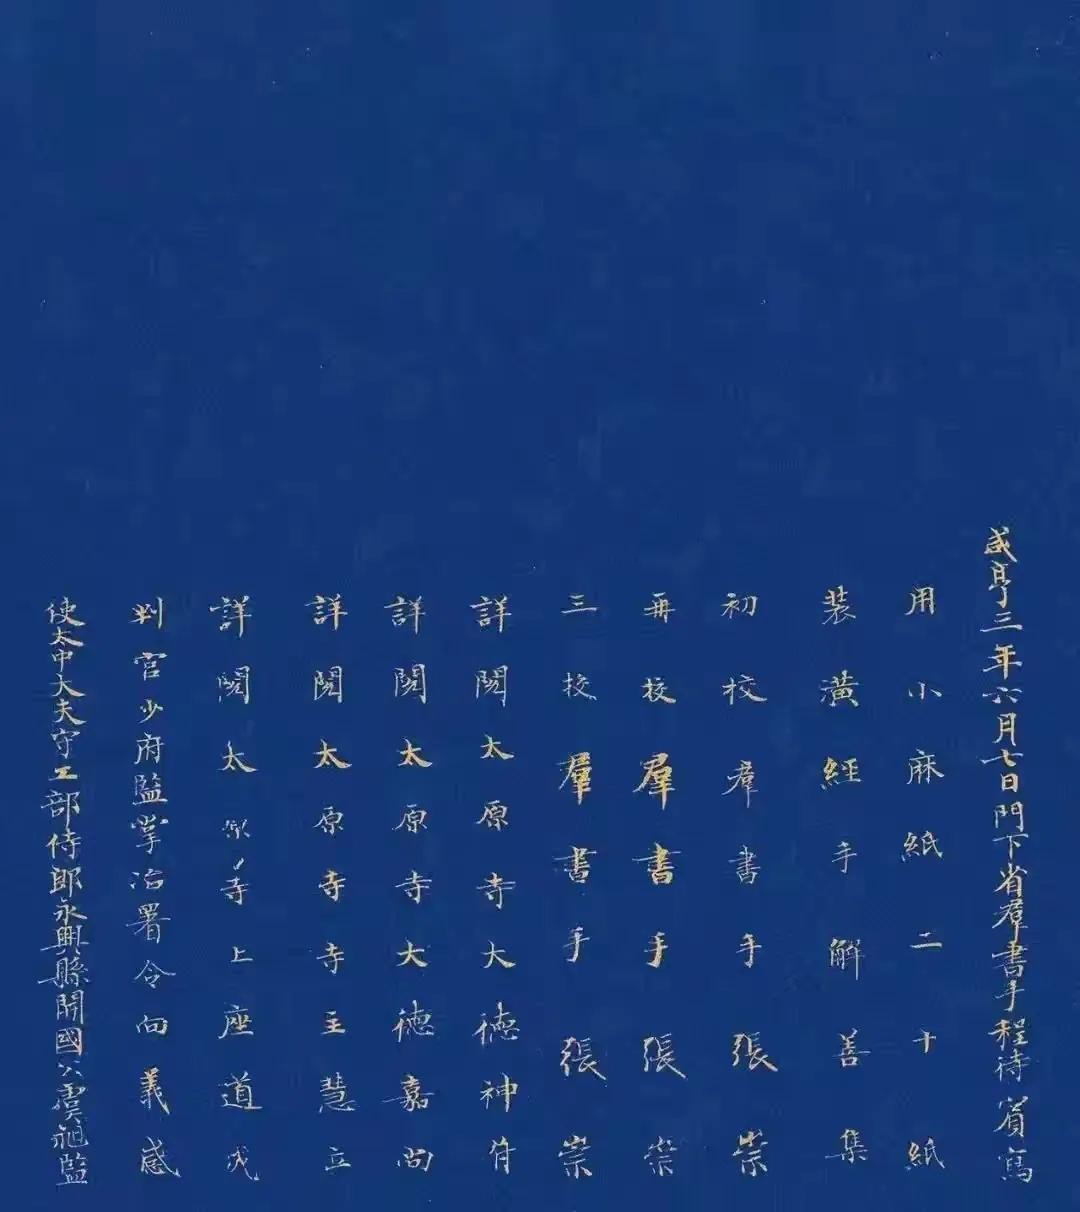 咸亨三年六月七日門下省羣書手程待賓寫
用小麻紙二十紙
装潢經手解善集
初校羣書手張崇
再校羣書手張崇
三校羣書手張崇
詳閱太原寺大德神符
詳閱太原寺大德嘉尚
詳閱太原寺寺主慧立
詳閱太原寺上座道成
判官少府監掌冶署令向義感
使太中大夫守工部侍郎永興縣開國公虞昶監